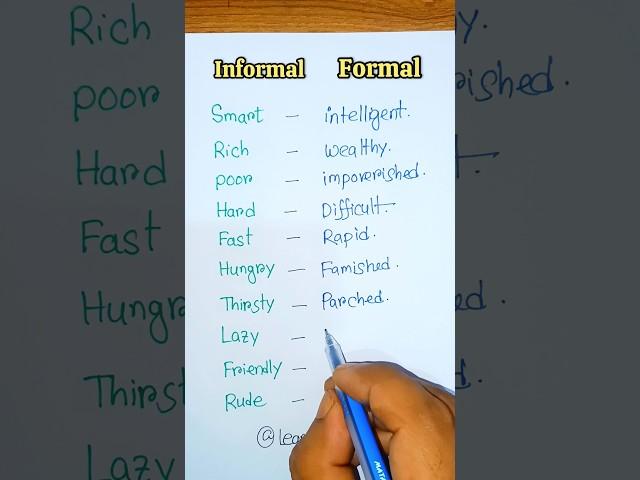 Informal Formal
Smart - intelligent.
Rich - wealthy.
poor - impoverished.
Hard - Difficult.
Fast - Rapid.
Hungry - Famished.
Thirsty - Parched.
Lazy -
Friendly -
Rude -